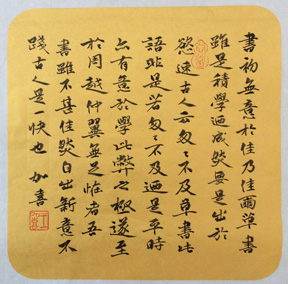 書初無意於佳乃佳爾草書
雖是積學迺成然要是出於
慾速古人云匆匆不及草書此
語非是若匆匆不及迺是平時
亦有意於學此弊之極遂至
於周越仲翼無足怪者吾
書雖不甚佳然自出新意不
踐古人是一快也 加喜